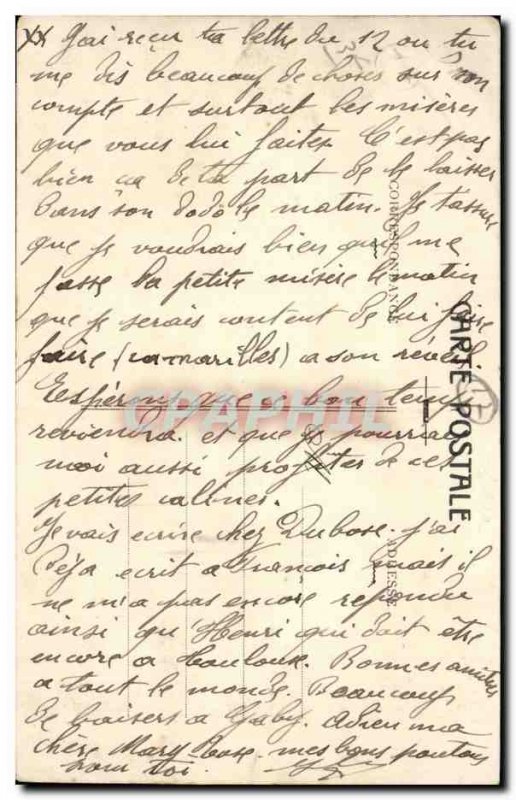 XX J'ai reçu ta lettre du 12 ou tu
me dis beaucoup de choses sur son
compte et surtout les misères
que vous lui faites C'est pas
bien ca de ta part de le laisser
dans son dodo le matin. Je t'assure
que je voudrais bien qu'il me
fasse la petite misère le matin
que je serais content de lui faire
faire (        ) a son réveil.
Espérons que ce bon temps
reviendra. et que je pourrai
moi aussi profiter de ces
petites calines.
Je vais ecrire chez Dubosc. j'ai
déja ecrit a Francois mais il
ne m'a pas encore repondu
ainsi qu'Henri qui doit être
encore a Toulouse. Bonnes amitiés
a tout le monde. Beaucoup
de baisers a Gaby. Adieu ma
chère Mary-Rose. mes bons poutous
pour toi.
CORRESPONDANCE
CARTE POSTALE
ADRESSE
CPAPHIL